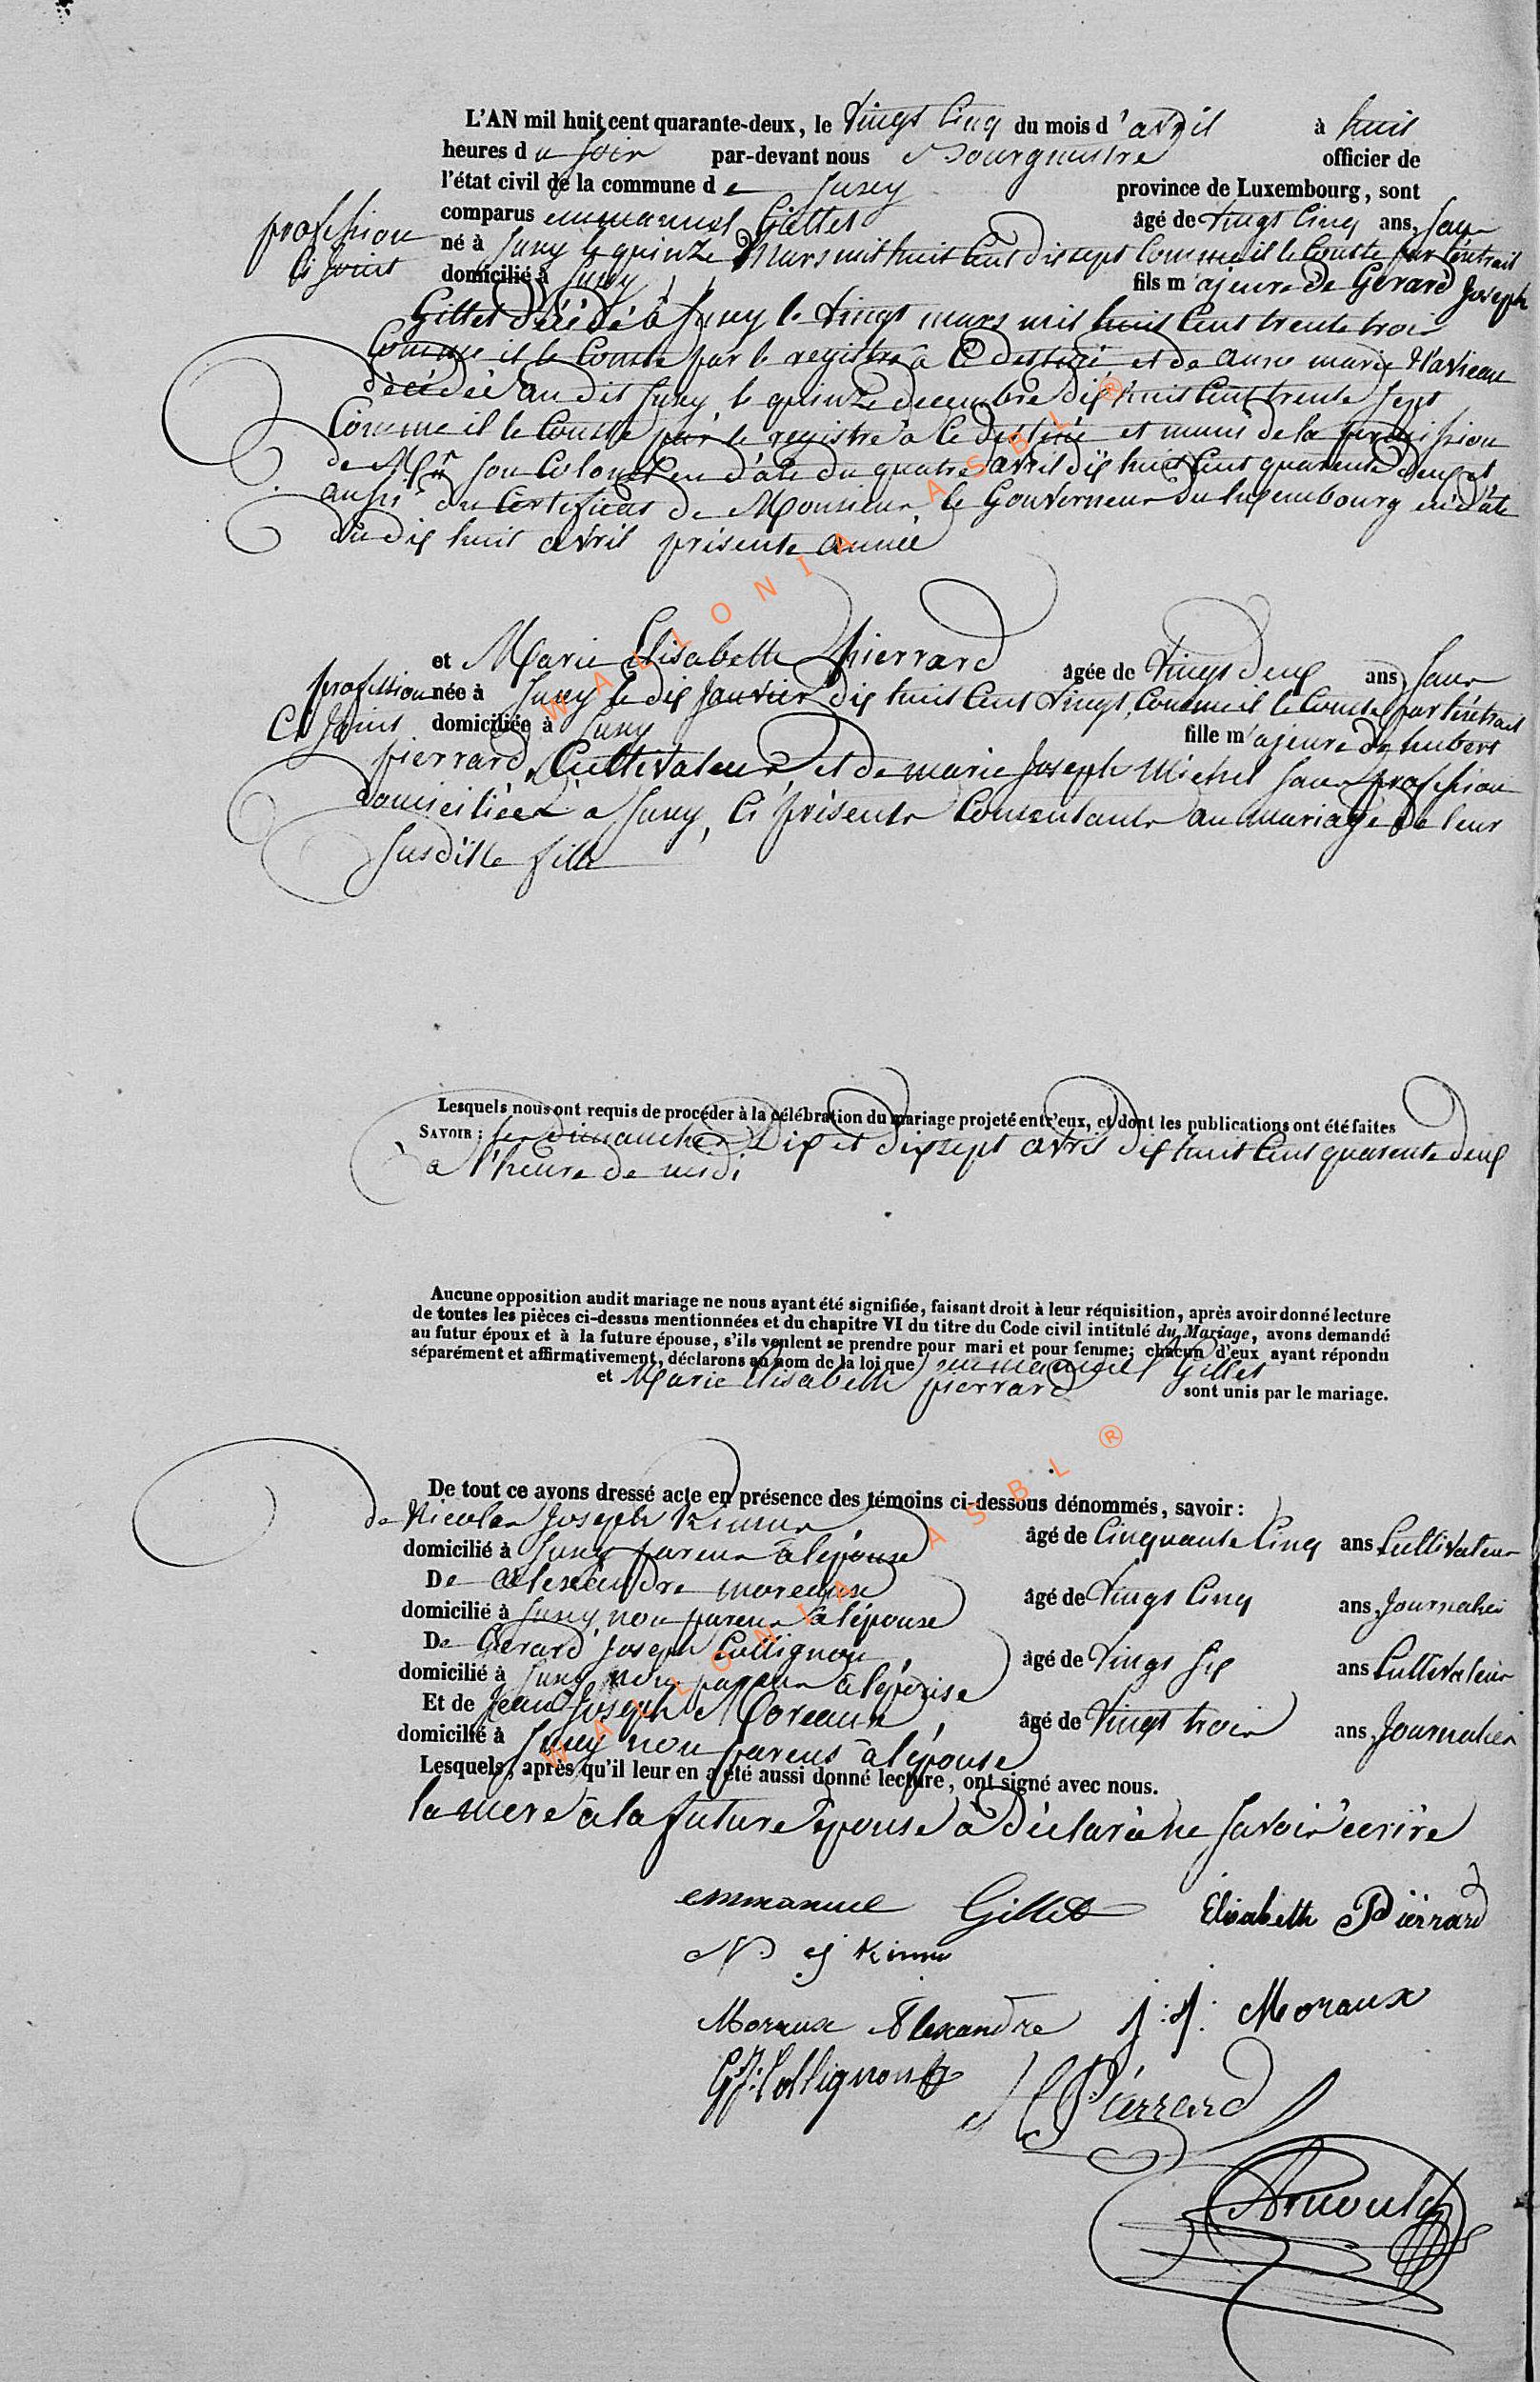 L'AN mil huit cent quarante-deux, le vingt cinq du mois d'avril à huit
heures du soir par-devant nous Bourgmestre officier de
l'état civil de la commune de Juzey province de Luxembourg, sont
comparus emmanuel Gillet âgé de vingt cinq ans, sans
profession né à Juzey le quinze Mars mil huit cent dix sept comme il le conste par l'éxtrait
ci joint domicilié à Juzey fils majeure de Gerard Joseph
Gillet décédé à Juzey le vingt mars mil huit cent trente trois
Comme il le conste par le registre à ce destiné et de anne marie
décédée au dit Juzey le quinze decembre dix huit cent trente sept
Comme il le conste par le registre à ce destiné et muni de la permission
de Mr son Colonel en date du quatre avril dix huit cent quarente deux et
aussi du certificat de Monsieur le Gouverneur du luxembourg en date
du dix huit avril présente année
et Marie Elisabeth pierrard âgée de vingt deux ans, sans
profession née à Juzey le dix Janvier dix huit cent vingt, comme il le conste par l'éxtrait
Ci Joint domiciliée à Juzey fille majeure de hubert
pierrard, Cultivateur, et de marie Joseph Michel sans profession
domiciliées à Juzey, ci présents Consentants au mariage de leur
susditte fille
Lesquels nous ont requis de procéder à la célébration du mariage projeté entr'eux, et dont les publications ont été faites
SAVOIR: les dimanches Dix et dix sept avril dix huit cent quarente deux
à l'heure de midi
Aucune opposition audit mariage ne nous ayant été signifiée, faisant droit à leur réquisition, après avoir donné lecture
de toutes les pièces ci-dessus mentionnées et du chapitre VI du titre du Code civil intitulé du Mariage, avons demandé
au futur époux et à la future épouse, s'ils veulent se prendre pour mari et pour femme; chacun d'eux ayant répondu
séparément et affirmativement, déclarons au nom de la loi que emmanuel Gillet
et Marie Elisabeth pierrard sont unis par le mariage.
De tout ce avons dressé acte en présence des témoins ci-dessous dénommés, savoir:
de Nicolas Joseph Kinne âgé de Cinquante Cinq ans Cultivateur
domicilié à Juzey parens à l'épouse
De Alexandre moreaux âgé de vingt cinq ans Journalier
domicilié à Juzey non parens à l'épouse
De Gerard Joseph Collignon, âgé de vingt six ans Cultivateur
domicilié à Juzey non parens à l'épouse
Et de Jean Joseph Moreaux, âgé de vingt trois ans Journalier
domicilié à Juzey non parens à l'épouse
Lesquels, après qu'il leur en a été aussi donné lecture, ont signé avec nous.
la mere à la future épouse à déclaré ne savoir écrire
emmanuel Gillet Elisabeth Pierrard
N J Kinne
Moraux Alexandre J: J: Moraux
G J: Collignon H Pierrard
Arnould
WALLONIA ASBL ®
WALLONIA ASBL ®